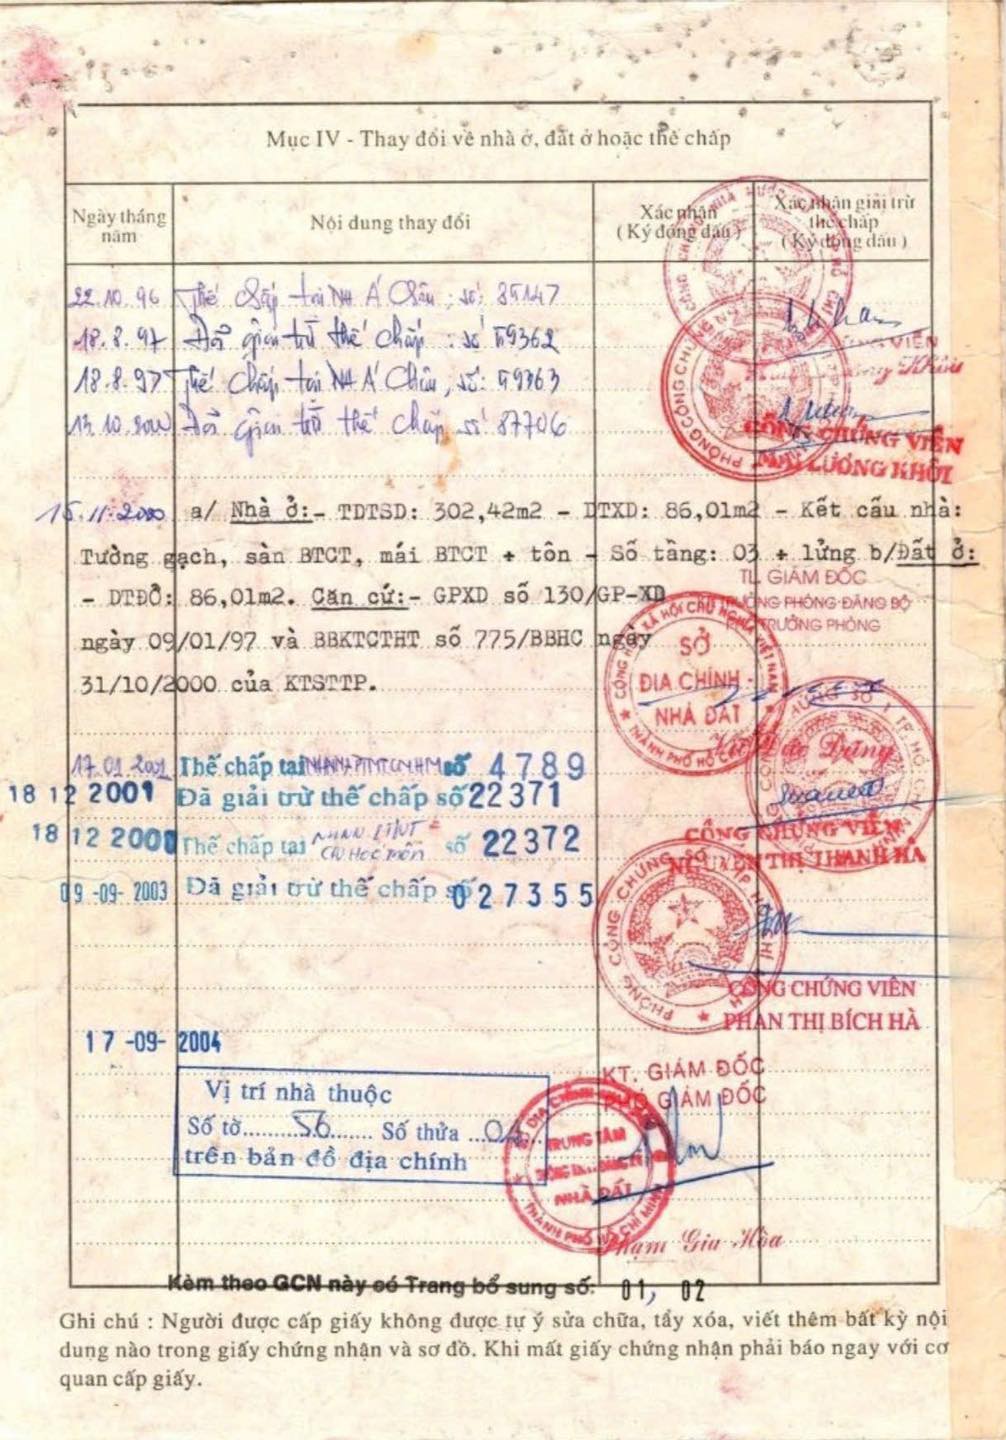 Mục IV - Thay đổi về nhà ở, đất ở hoặc thế chấp
Ngày tháng năm
Nội dung thay đổi
Xác nhận
( Ký đóng dấu )
Xác nhận giải trừ thế chấp
( Ký đóng dấu )
22.10.96 Thế chấp tại NH Á Châu ; số: 85147
18.8.97 Đã giải trừ thế chấp : số 59362
18.8.97 Thế chấp tại NH Á Châu, số: 59363
13.10.2000 Đã giải trừ thế chấp số 87706
CÔNG CHỨNG VIÊN
MAI LƯƠNG KHÔI
15.11.2000 a/ Nhà ở:- TDTSD: 302,42m2 - DTXD: 86,01m2 - Kết cấu nhà:
Tường gạch, sàn BTCT, mái BTCT + tôn - Số tầng: 03 + lửng b/Đất ở:
- DTĐỞ: 86,01m2. Căn cứ:- GPXD số 130/GP-XD
ngày 09/01/97 và BBKTCTHT số 775/BBHC ngày
31/10/2000 của KTSTTP.
TL GIÁM ĐỐC
TRƯỞNG PHÒNG ĐĂNG BỘ
TRƯỞNG PHÒNG
CỘNG HÒA XÃ HỘI CHỦ NGHĨA VIỆT NAM
SỞ
ĐỊA CHÍNH -
NHÀ ĐẤT
THÀNH PHỐ HỒ CHÍ
17.01.2001 Thế chấp tại số 4789
18 12 2001 Đã giải trừ thế chấp số 22371
18 12 2001 Thế chấp tại số 22372
CN Hóc Môn
09 -09- 2003 Đã giải trừ thế chấp số 027355
CÔNG CHỨNG VIÊN
NGUYỄN THỊ THANH HÀ
PHÒNG CÔNG CHỨNG SỐ
CÔNG CHỨNG VIÊN
PHAN THỊ BÍCH HÀ
17 -09- 2004
Vị trí nhà thuộc
Số tờ 56 Số thửa
trên bản đồ địa chính
KT. GIÁM ĐỐC
PHÓ GIÁM ĐỐC
TRUNG TÂM
NHÀ ĐẤT
THÀNH PHỐ HỒ CHÍ MINH
Phạm Gia Hòa
Kèm theo GCN này có Trang bổ sung số: 01, 02
Ghi chú : Người được cấp giấy không được tự ý sửa chữa, tẩy xóa, viết thêm bất kỳ nội
dung nào trong giấy chứng nhận và sơ đồ. Khi mất giấy chứng nhận phải báo ngay với cơ
quan cấp giấy.